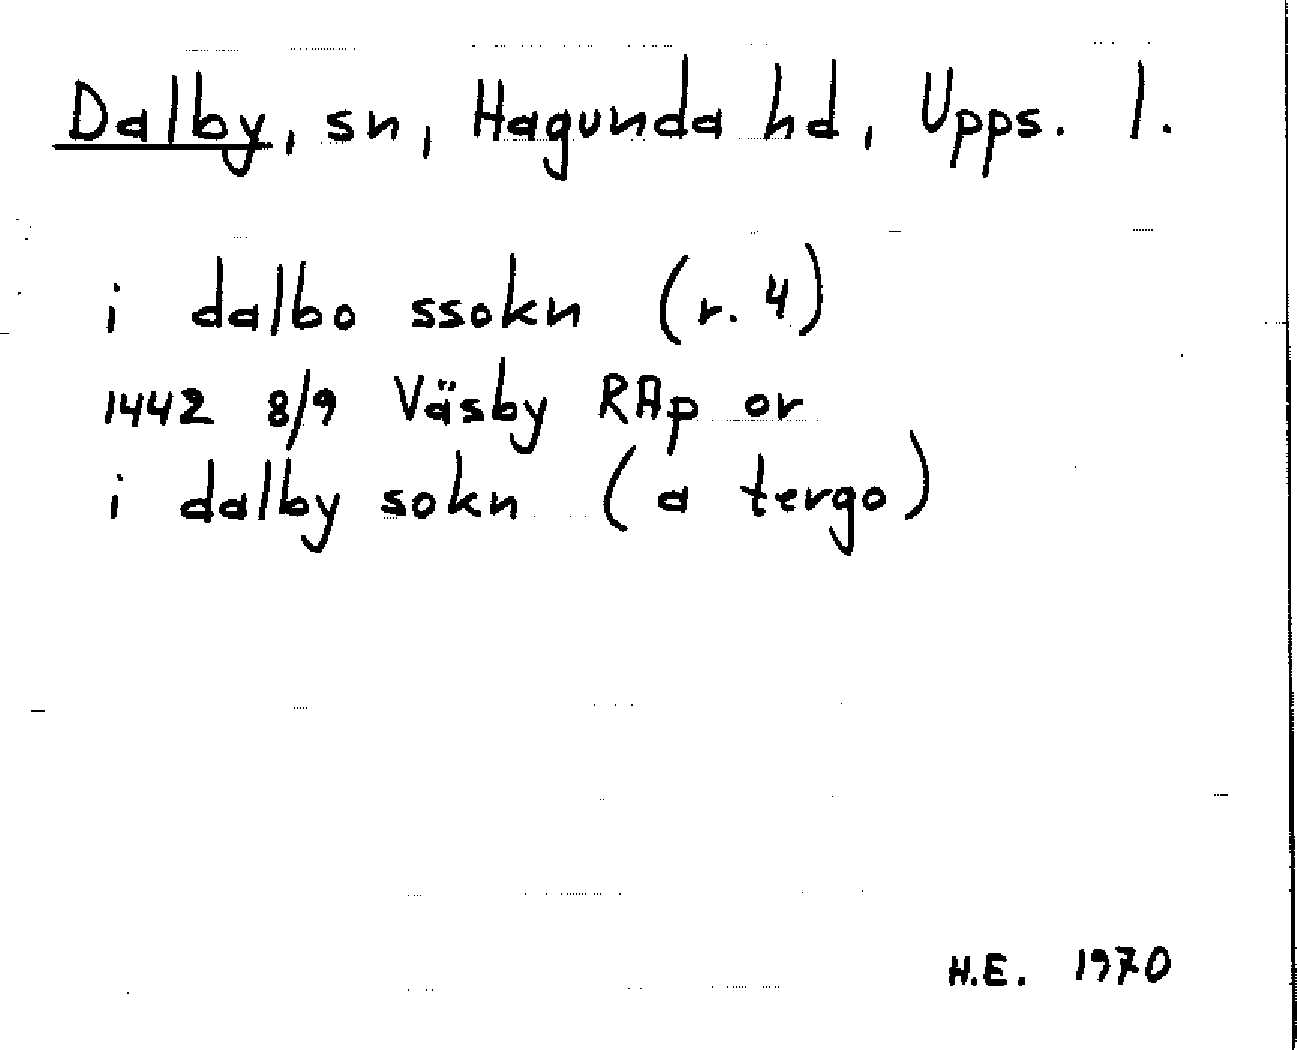 Dalby, sn, Hagunda hd, Upps. l.
i dalbo ssokn (r. 4)
1442 8/9 Väsby RAp or
i dalby sokn (a tergo)
H.E. 1970